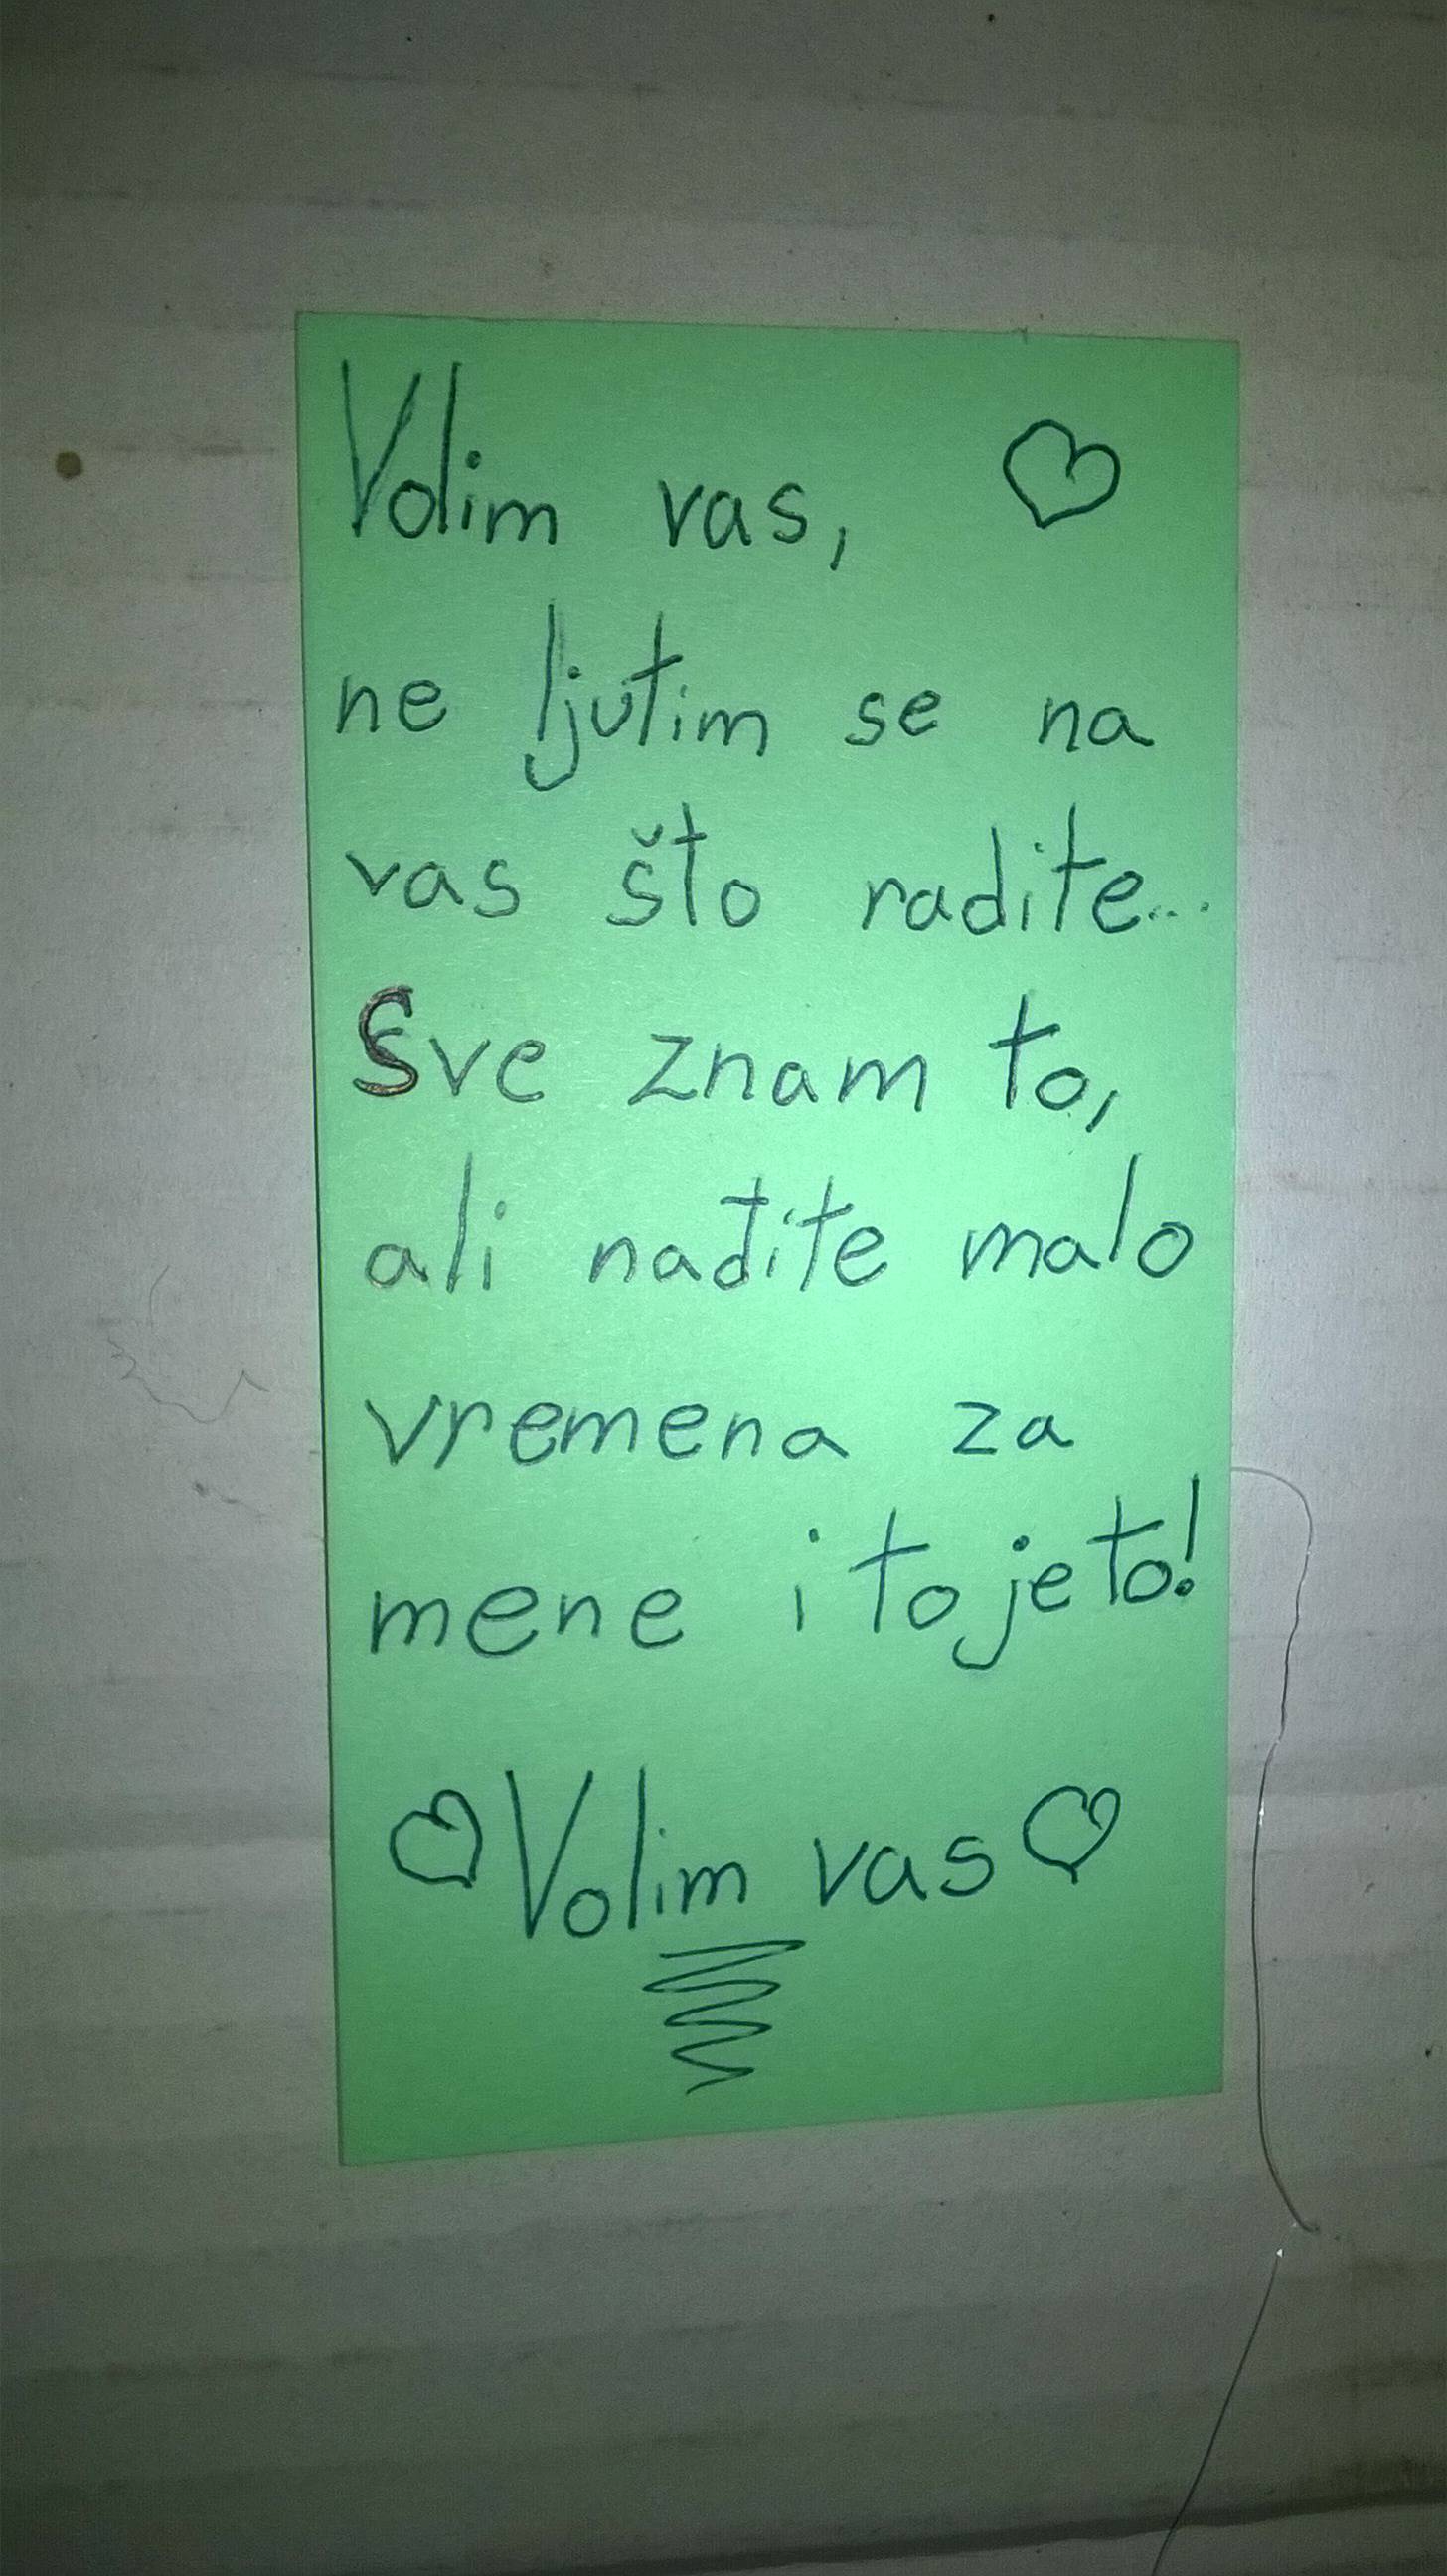 Volim vas, ♡
ne ljutim se na
vas što radite...
Sve znam to,
ali nađite malo
vremena za
mene i to je to!
♡ Volim vas ♡